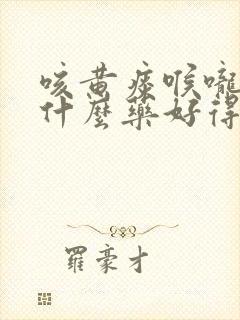 咳黄痰喉嚨
什麼藥好得
羅豪才